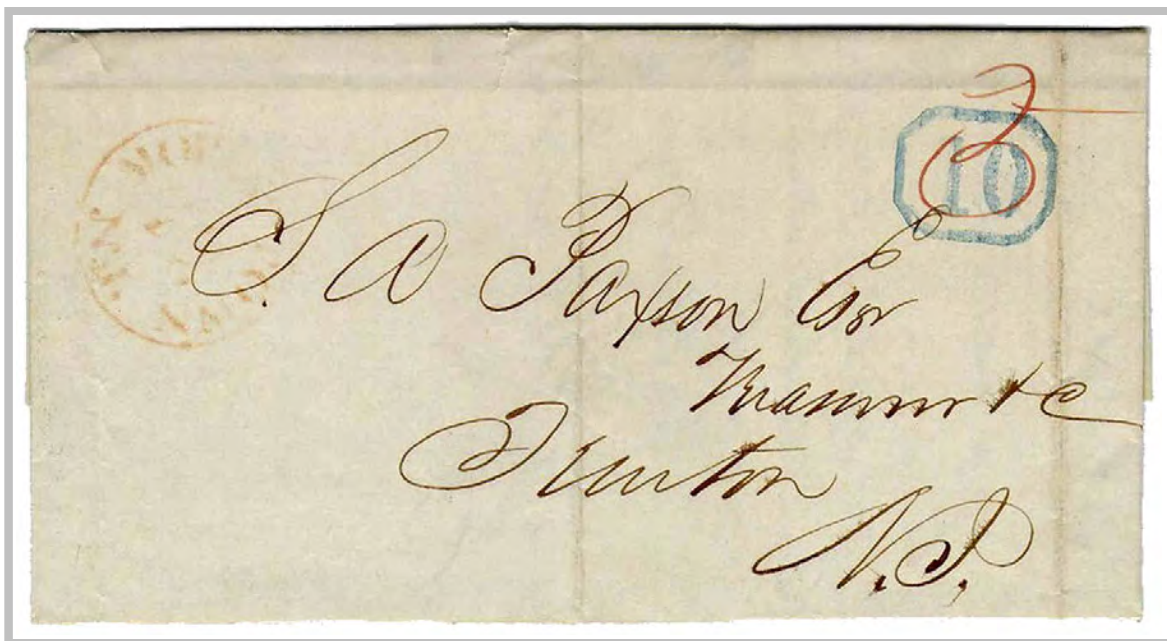 10
S. A Paxson Esr
Treasurer &c
Trenton
N.J.